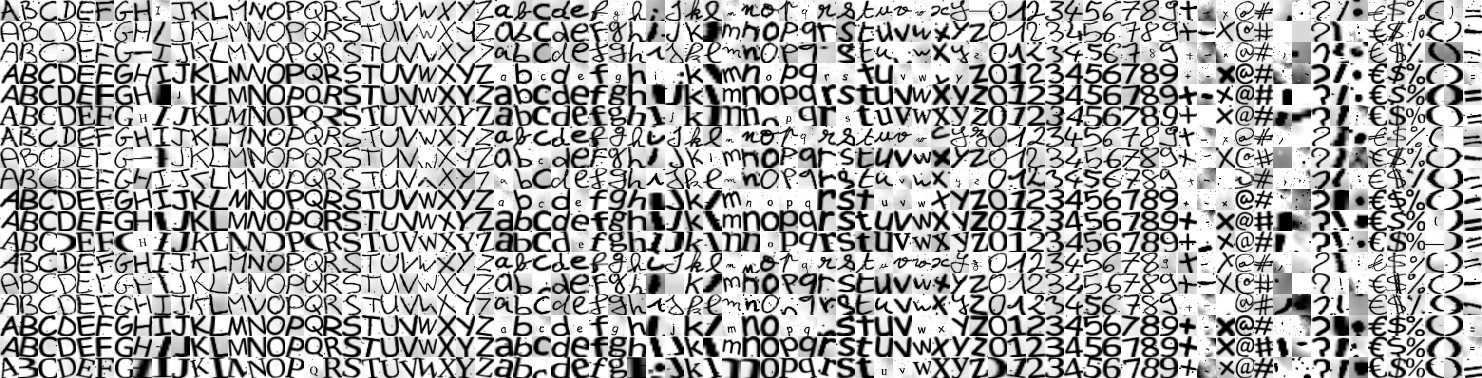 ABCDEFGHIJKLMNOPQRSTUVWXYZabcdefghijklmnopqrstuvwxyz0123456789+-x@#?!€$%()
ABCDEFGHIJKLMNOPQRSTUVWXYZabcdefghijklmnopqrstuvwxyz0123456789+-x@#?!€$%()
ABCDEFGHIJKLMNOPQRSTUVWXYZabcdefghijklmnopqrstuvwxyz0123456789+-x@#?!€$%()
ABCDEFGHIJKLMNOPQRSTUVWXYZabcdefghijklmnopqrstuvwxyz0123456789+-x@#?!€$%()
ABCDEFGHIJKLMNOPQRSTUVWXYZabcdefghijklmnopqrstuvwxyz0123456789+-x@#?!€$%()
ABCDEFGHIJKLMNOPQRSTUVWXYZabcdefghijklmnopqrstuvwxyz0123456789+-x@#?!€$%()
ABCDEFGHIJKLMNOPQRSTUVWXYZabcdefghijklmnopqrstuvwxyz0123456789+-x@#?!€$%()
ABCDEFGHIJKLMNOPQRSTUVWXYZabcdefghijklmnopqrstuvwxyz0123456789+-x@#?!€$%()
ABCDEFGHIJKLMNOPQRSTUVWXYZabcdefghijklmnopqrstuvwxyz0123456789+-x@#?!€$%()
ABCDEFGHIJKLMNOPQRSTUVWXYZabcdefghijklmnopqrstuvwxyz0123456789+-x@#?!€$%()
ABCDEFGHIJKLMNOPQRSTUVWXYZabcdefghijklmnopqrstuvwxyz0123456789+-x@#?!€$%()
ABCDEFGHIJKLMNOPQRSTUVWXYZabcdefghijklmnopqrstuvwxyz0123456789+-x@#?!€$%()
ABCDEFGHIJKLMNOPQRSTUVWXYZabcdefghijklmnopqrstuvwxyz0123456789+-x@#?!€$%()
ABCDEFGHIJKLMNOPQRSTUVWXYZabcdefghijklmnopqrstuvwxyz0123456789+-x@#?!€$%()
ABCDEFGHIJKLMNOPQRSTUVWXYZabcdefghijklmnopqrstuvwxyz0123456789+-x@#?!€$%()
ABCDEFGHIJKLMNOPQRSTUVWXYZabcdefghijklmnopqrstuvwxyz0123456789+-x@#?!€$%()
ABCDEFGHIJKLMNOPQRSTUVWXYZabcdefghijklmnopqrstuvwxyz0123456789+-x@#?!€$%()
ABCDEFGHIJKLMNOPQRSTUVWXYZabcdefghijklmnopqrstuvwxyz0123456789+-x@#?!€$%()